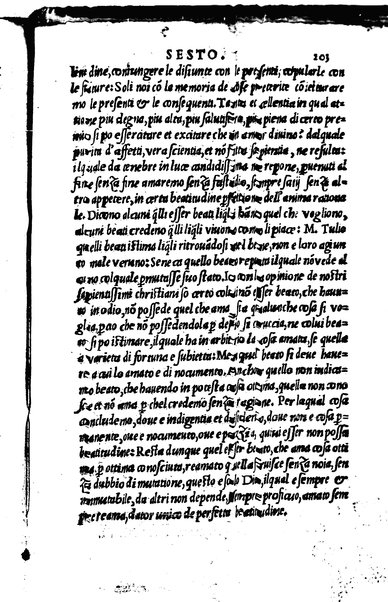 SESTO. 203
dine, congiungere le disiunte con le presenti, copularle con
le future: Soli noi cō la memoria de cose preterite cōietturare
mo le presenti & le consequenti. Tanta et cellentia in qual at
tione piu degna, piu alta, piu salutifera, piu piena di certo pre
mio si po essercitare et excitare che in amor divino: dal quale
purita d'affetti, vera scientia, et nō fitta sapientia, ne resulta:
il quale da tenebre in luce candidissima ne repone, guenuti al
fine senza fine amaremo senza fastidio, sempre satij senz'al
tro appetere, in certa beatitudine pfettione dell'anima rationa
le. Dicono alcuni q̄lli esser beati liq̄li hāno quel che vogliono,
alcuni beati credeno q̄lli liq̄li viuono como li piace: M. Tulio
quelli beati istima liq̄li ritrouādosi nel bene, non e loro agiun
to male veruno: Seneca quello beato reputa il quale nō vede al
cuno col quale pmutasse suo stato. Io con la opinione de nostri
sapientissimi christiani so certo colui nō esser beato, che hauu
to in odio, nō possede quel che ama, qualunche cosa si vo
glia, p̄cio che nō possedendola p desio si cruccia, ne colui bea
to si po istimare, il quale ha in arbitrio la cosa amata, se quella
a varieta di fortuna e subietta: Me a quel beato si deue haue
re a cui lo amato e di nocumento. Anchor quello non iudica
mo beato, che hauendo in potesta cosa ottima, quella non cono
sce et nō ama p chel credemo senza ragione. Per laqual cosa
concludemo, doue e indigentia et desiderio, doue non e cosa p
manente, oue e nocumento, oue e pazzia, quiui esser non possa
beatitudine: Resta dunque quel esser beato, che ama cosa otti
ma, p ottima conosciuta, reamato quella fruisce senza noia, sen
za dubbio di mutatione, questo e solo Dio, il qual e sempre &
immutabile, da altri non depende, sempre proficuo, amato sem
pre reama, dator unico de perfetta beatitudine.